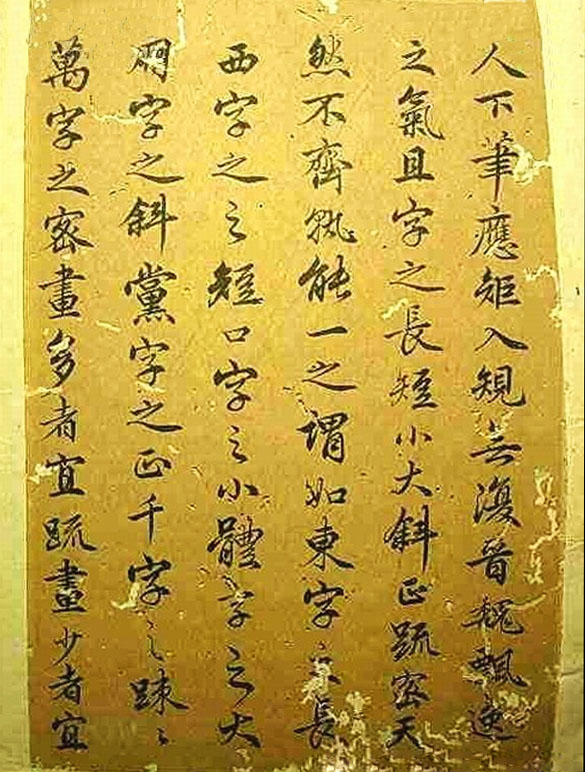 人下筆應矩入規無復晉魏飄逸
之氣且字之長短小大斜正疏密天
然不齊孰能一之謂如東字之長
西字之之短口字之小體字之大
朋字之斜黨字之正千字之踈〻
萬字之密畫多者宜疏畫少者宜